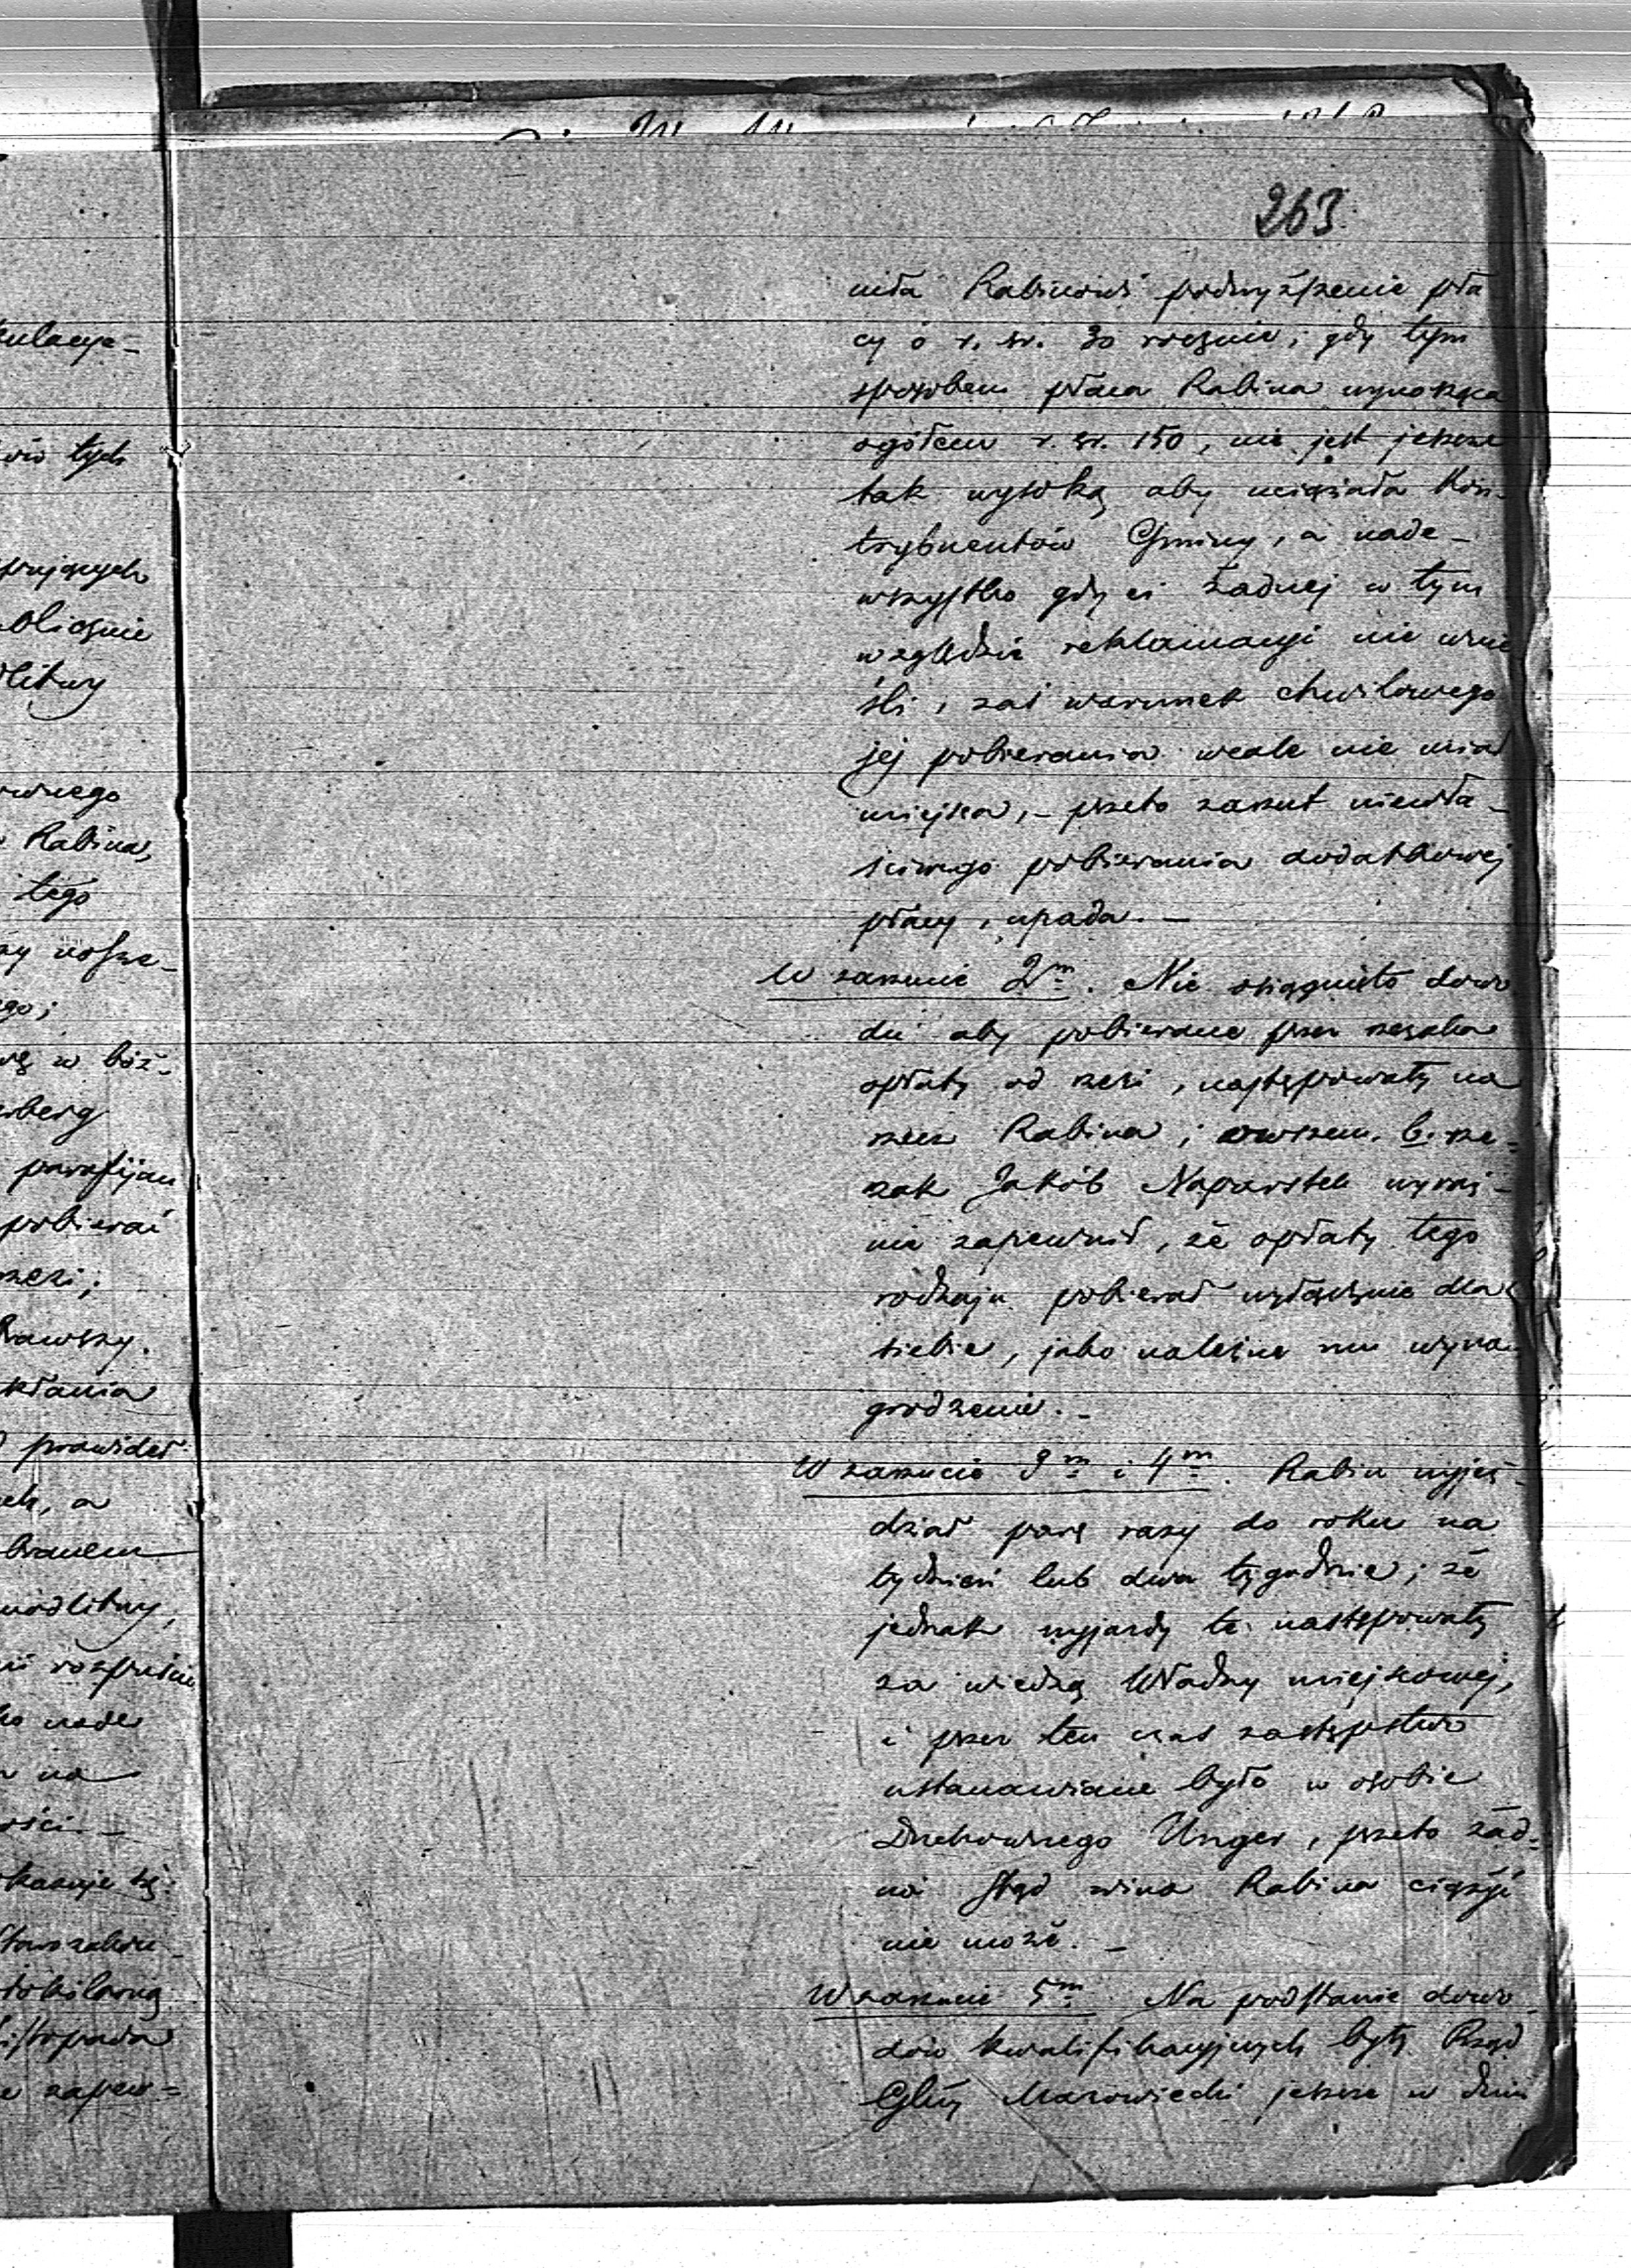 263.
niła Rabinowi podwyższenie pła
cy o r. sr. 30 rocznie; gdy tym
sposobem płaca Rabina wynosząca
ogółem r. sr. 150, nie jest jeszcze
tak wysoką aby uciążała Kon-
trybuentów Gminy, a nade-
wszystko gdy ci żadnej w tym
względzie reklamacyi nie wnie
śli, zaś warunek chwilowego
jej pobierania wcale nie miał
miejsca, - przeto zarzut niewła-
ściwego pobierania dodatkowej
płacy, upada. -
W zarzucie 2m. Nie osiągnięto dowo
du aby pobierane przez rzezaka
opłaty od rzezi, następowały na
rzecz Rabina; owszem b. rze-
zak Jakób Naparstek wyraź-
nie zapewnił, że opłaty tego
rodzaju pobierał wyłącznie dla
siebie, jako należne mu wyna
grodzenie. -
W zarzucie 3m i 4m. Rabin wyjeż-
dżał parę razy do roku na
tydzień lub dwa tygodnie; że
jednak wyjazdy te następowały
za wiedzą Władzy miejscowej,
i przez ten czas zastępstwo
ustanawiane było w osobie
Duchownego Unger, przeto żad-
na stąd wina Rabina ciążyć
nie może. -
W zarzucie 5m Na podstawie dowo-
dów kwalifikacyjnych były Rząd
Glny Mazowiecki jeszcze w dniu
kulacye-
tych
pujących
ublicznie
dlitwy
Rabina,
tego
go;
w bóż-
berg
parafijan
pobierać
rzezi;
Rawszy.
prawideł
a
modlitwy,
na
ości. -
okazuje się:
Starozakon-
listopada
zapew=